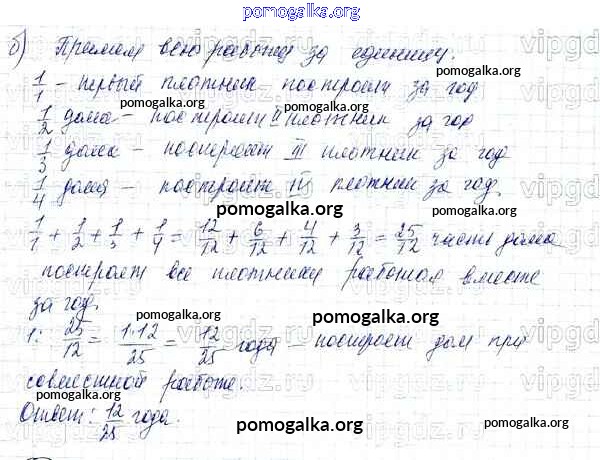 pomogalka.org
б) Примем всю работу за единицу.
1/1 - первый плотник построит за год
pomogalka.org pomogalka.org
1/2 дома - построит II плотник за год
1/3 дома - построит III плотник за год
1/4 дома - построит IV плотник за год.
pomogalka.org
1/1 + 1/2 + 1/3 + 1/4 = 12/12 + 6/12 + 4/12 + 3/12 = 25/12 части дома
построят все плотники работая вместе
за год.
pomogalka.org pomogalka.org
1 : 25/12 = 1·12/25 = 12/25 года - построят дом при
совместной работе.
pomogalka.org
Ответ: 12/25 года.
pomogalka.org pomogalka.org